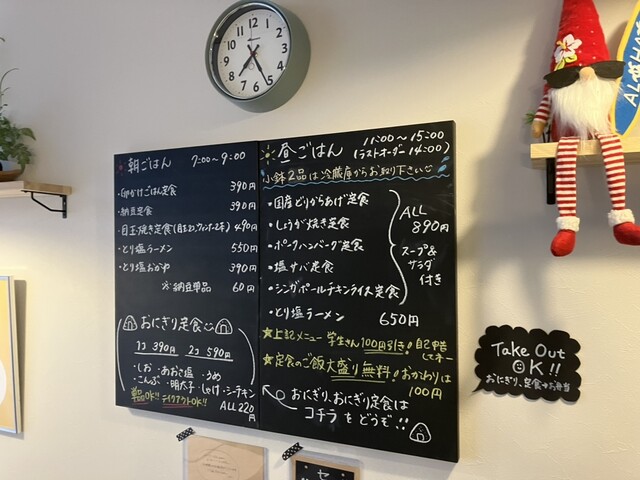 朝ごはん 7:00～9:00
・卵かけごはん定食 390円
・納豆定食 390円
・目玉焼き定食(目玉2コ,ウィンナー2本) 490円
・とり塩ラーメン 550円
・とり塩おかゆ 390円
※納豆単品 60円
おにぎり定食
1コ 390円 2コ 590円
・しお・あおさ塩・うめ
・こんぶ・明太子・しゃけ・シーチキン
単品OK!! テイクアウトOK!! ALL 220円
昼ごはん 11:00～15:00
(ラストオーダー 14:00)
小鉢2品は冷蔵庫からお取り下さい
・国産どりからあげ定食
・しょうが焼き定食
・ポークハンバーグ定食
・塩サバ定食
・シンガポールチキンライス定食
ALL
890円
スープ&
サラダ
付き
・とり塩ラーメン 650円
★上記メニュー学生さん100円引き!自己申告
してネー
★定食のご飯大盛り無料!おかわりは
100円
おにぎり、おにぎり定食は
コチラをどうぞ!!
Take Out
OK!!
おにぎり、定食→弁当
12
1
2
3
4
5
6
7
8
9
10
11